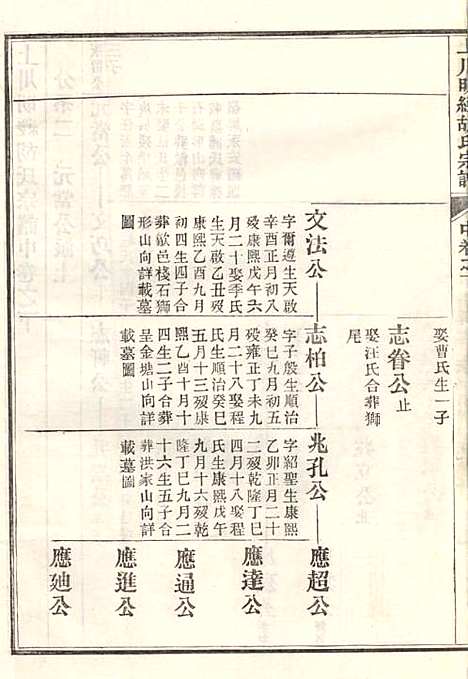 上川明經胡氏宗譜
中卷之
娶曹氏生一子
志眷公止
娶汪氏合葬獅
尾
文法公
字爾遵生天啟
辛酉正月初六
歿康熙戊午六
月二十娶季氏
生天啟乙丑歿
康熙乙酉九月
初四生四子合
葬歙邑棧石獅
形山向詳載墓
圖
志柏公
字子殷生順治
癸巳九月初五
歿雍正丁未九
月二十八娶程
氏生順治癸巳
五月十三歿康
熙乙酉十月十
四生二子合葬
呈金塘山向詳
載墓圖
兆孔公
字紹聖生康熙
乙卯正月二十
二歿乾隆丁巳
四月十八娶程
氏生康熙戊午
九月十六歿乾
隆丁巳九月二
十六生五子合
葬洪家山向詳
載墓圖
應超公
應達公
應通公
應進公
應廸公